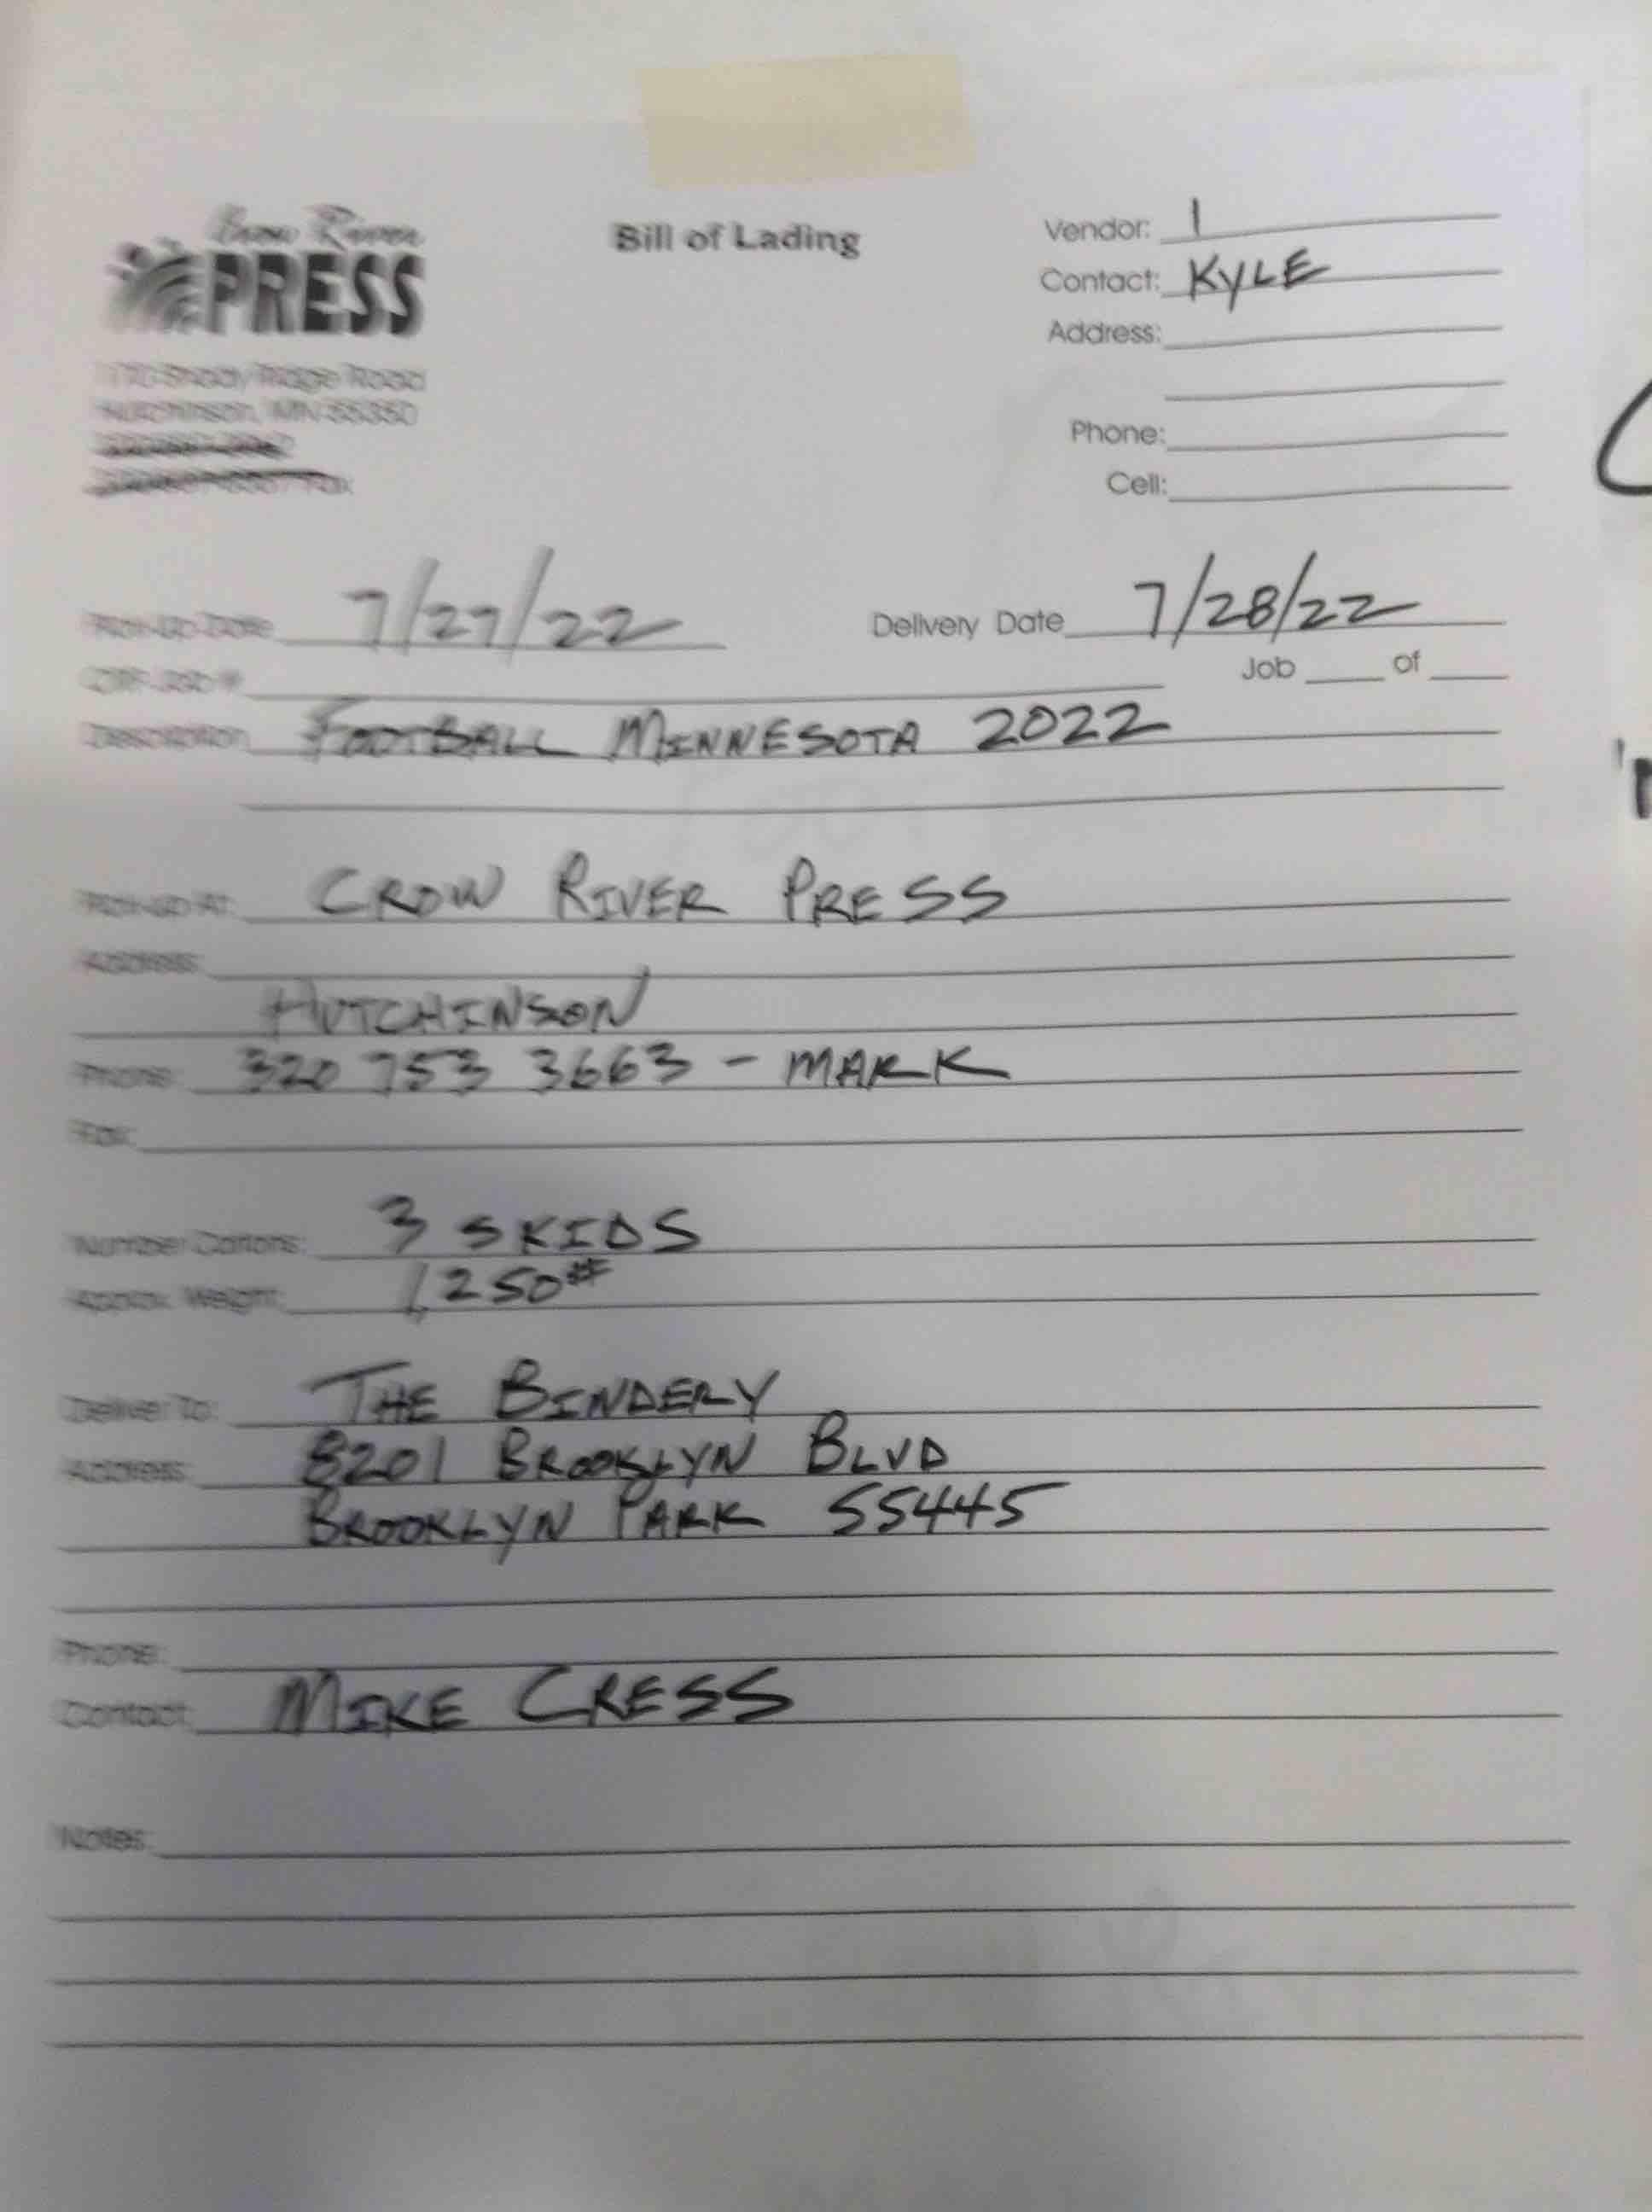 Crow River
PRESS
Bill of Lading
Vendor: 1
Contact: KYLE
Address:
Phone:
Cell:
Shady Ridge Road
Hutchinson, MN 55350
Fax
Pick-Up Date 7/27/22
Delivery Date 7/28/22
CRP Job #
Job ____ of ____
Description FOOTBALL MINNESOTA 2022
Pick-Up At: CROW RIVER PRESS
Address:
HUTCHINSON
Phone: 320 753 3663 - MARK
Fax:
Number Cartons: 3 SKIDS
Approx. Weight: 1250#
Deliver To: THE BINDERY
Address: 8201 BROOKLYN BLVD
BROOKLYN PARK 55445
Phone:
Contact: MIKE CRESS
Notes: